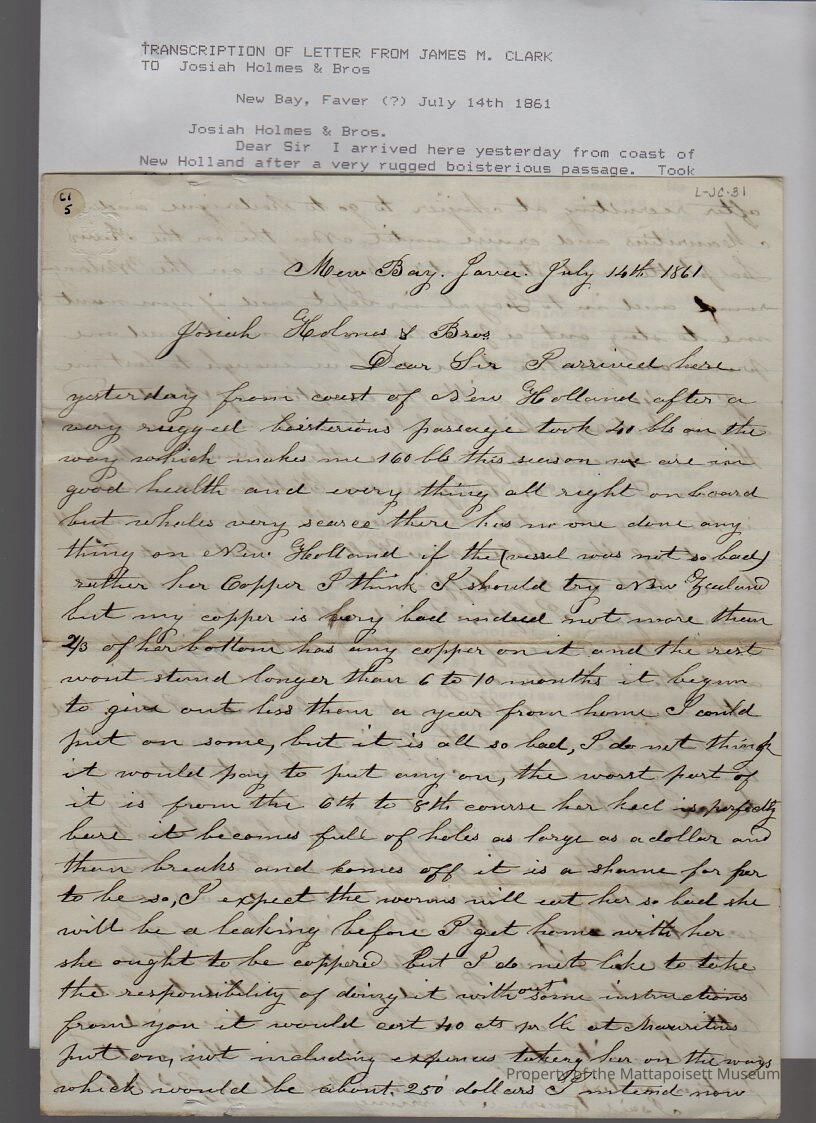 TRANSCRIPTION OF LETTER FROM JAMES M. CLARK
TO Josiah Holmes & Bros
New Bay, Faver (?) July 14th 1861
Josiah Holmes & Bros.
Dear Sir I arrived here yesterday from coast of
New Holland after a very rugged boisterious passage. Took
C1
5
L-JC-31
Mew Bay. Java. July 14th 1861
Josiah Holmes & Bros
Dear Sir I arrived here
yesterday from coast of New Holland after a
very rugged boisterious passage took 40 bls on the
way which makes me 160 bb this season we are in
good health and every thing all right on board
but whales very scarce there has no one done any
thing on New Holland if the (vessel was not so bad)
rather her Copper I think I should try New Zealand
but my copper is very bad indeed not more than
2/3 of her bottom has any copper on it and the rest
wont stand longer than 6 to 10 months it begun
to give out less than a year from home I could
put on some, but it is all so bad, I do not think
it would pay to put any on, the worst part of
it is from the 6th to 8th course her keel is perfectly
bare it becomes full of holes as large as a dollar and
then breaks and comes off it is a shame for her
to be so, I expect the worms will eat her so bad she
will be a leaking before I get home with her
she ought to be coppered but I do not like to take
the responsibility of doing it without some instructions
from you it would cost 40 cts pr lb at Mauritius
put on, not including expences takeing her on the ways
which would be about. 250 dollars I intend now
Property of the Mattapoisett Museum